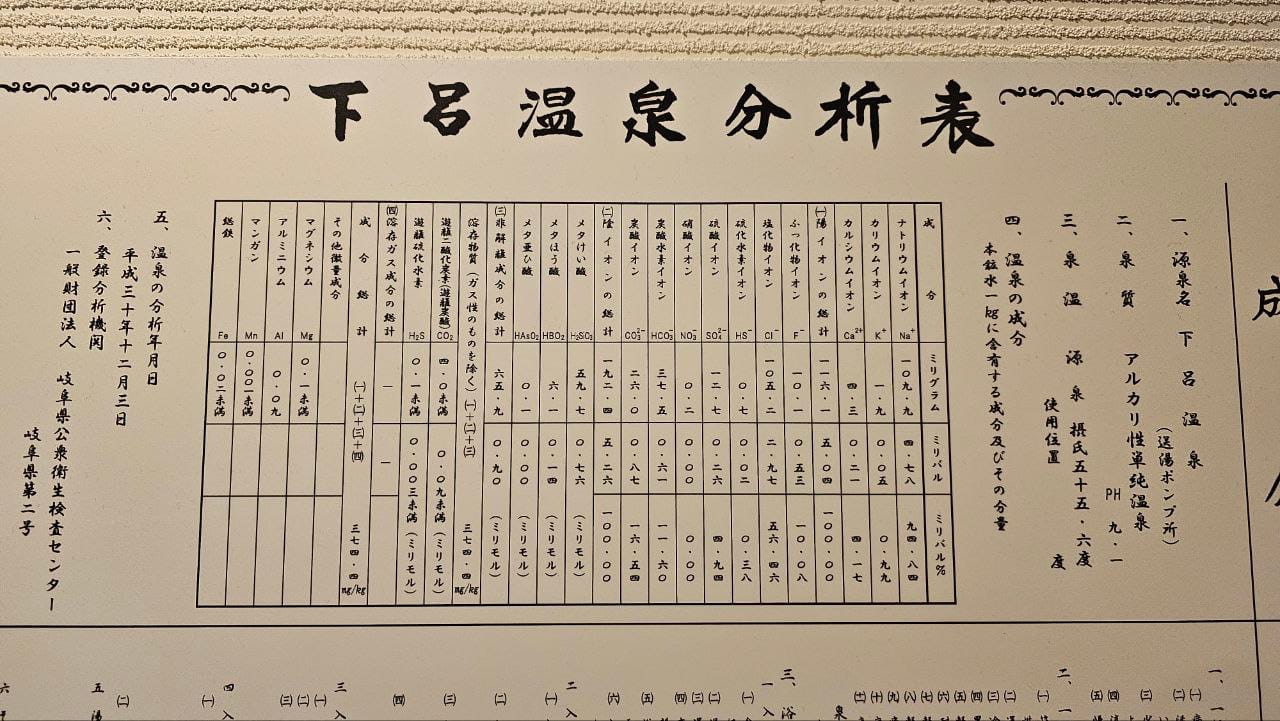 下呂温泉分析表
一、源泉名 下呂温泉
(送湯ポンプ所)
二、泉質 アルカリ性単純温泉
PH 九・一
三、泉温 源泉 摂氏五十五・六度
使用位置 度
四、温泉の成分
本鉱水一kgに含有する成分及びその分量
成分 ミリグラム ミリバル ミリバル%
ナトリウムイオン Na⁺ 一〇九・九 四・七八 九四・八四
カリウムイオン K⁺ 一・九 〇・〇五 〇・九九
カルシウムイオン Ca²⁺ 四・三 〇・二一 四・一七
㈠陽イオンの総計 一一六・一 五・〇四 一〇〇・〇〇
ふっ化物イオン F⁻ 一〇・一 〇・五三 一〇・〇八
塩化物イオン Cl⁻ 一〇五・二 二・九七 五六・四六
硫化水素イオン HS⁻ 〇・七 〇・〇二 〇・三八
硫酸イオン SO₄²⁻ 一二・七 〇・二六 四・九四
硝酸イオン NO₃⁻ 〇・二 〇・〇〇 〇・〇〇
炭酸水素イオン HCO₃⁻ 三七・五 〇・六一 一一・六〇
炭酸イオン CO₃²⁻ 二六・〇 〇・八七 一六・五四
㈡陰イオンの総計 一九二・四 五・二六 一〇〇・〇〇
メタけい酸 H₂SiO₃ 五九・七 〇・七六 (ミリモル)
メタほう酸 HBO₂ 六・一 〇・一四 (ミリモル)
メタ亜ひ酸 HAsO₂ 〇・一 〇・〇〇 (ミリモル)
㈢非解離成分の総計 六五・九 〇・九〇 (ミリモル)
溶存物質(ガス性のものを除く) ㈠+㈡+㈢ 三七四・四 mg/kg
遊離二酸化炭素(遊離炭酸) CO₂ 四・〇未満 〇・〇九未満 (ミリモル)
遊離硫化水素 H₂S 〇・一未満 〇・〇〇三未満 (ミリモル)
㈣溶存ガス成分の総計 — —
成分総計 ㈠+㈡+㈢+㈣ 三七四・四 mg/kg
その他微量成分
マグネシウム Mg 〇・一未満
アルミニウム Al 〇・〇九
マンガン Mn 〇・〇〇一未満
総鉄 Fe 〇・〇二未満
五、温泉の分析年月日
平成三十年十二月三日
六、登録分析機関
一般財団法人 岐阜県公衆衛生検査センター
岐阜県第二号